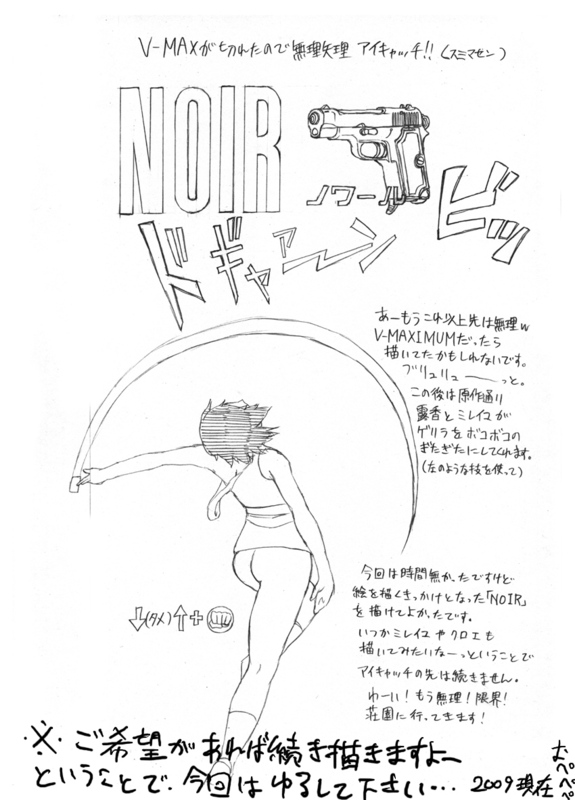 V-MAXが切れたので無理矢理 アイキャッチ!!(スミマセン)
NOIR
ノワール
ビッ
ドギャァーン
あーもうこれ以上先は無理w
V-MAXIMUMだったら
描いてたかもしれないです。
ブリュリューーっと。
この後は原作通り
霧香とミレイユが
ゲリラをボコボコの
ぎたぎたにしてくれます。
(左のような技を使って)
今回は時間無かったですけど
絵を描くきっかけとなった「NOIR」
を描けてよかったです。
いつかミレイユやクロエも
描いてみたいなーっということで
アイキャッチの先は続きません。
わーい!もう無理!限界!
荘園に行ってきます!
⇩(タメ)⇧+
※・ご希望があれば続き描きますよー
ということで、今回はゆるして下さい…2009現在
おぺぺぺ